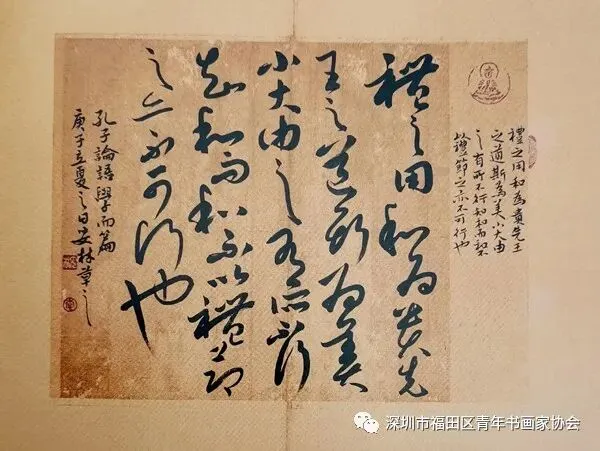 禮之用和為貴先王
之道斯為美小大由
之有所不行知和而和不
以禮節之亦不可行也
禮之用和為貴先
王之道斯為美
小大由之有所不行
知和而和不以禮節
之亦不可行也
孔子論語學而篇
庚子立夏之日安林草之
深圳市福田区青年书画家协会